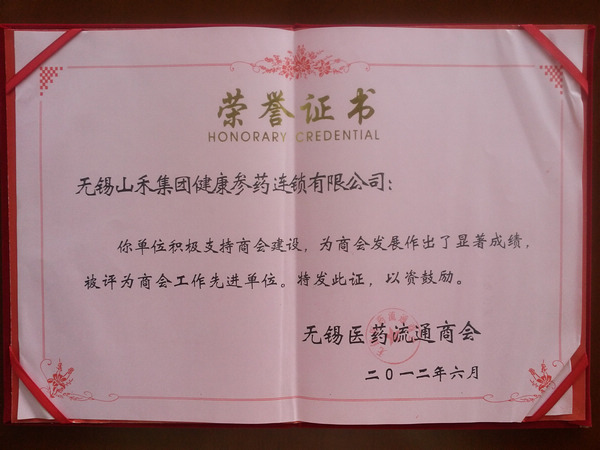 荣誉证书
HONORARY CREDENTIAL
无锡山禾集团健康参药连锁有限公司：
你单位积极支持商会建设，为商会发展作出了显著成绩，
被评为商会工作先进单位。特发此证，以资鼓励。
无锡医药流通商会
二〇一二年六月